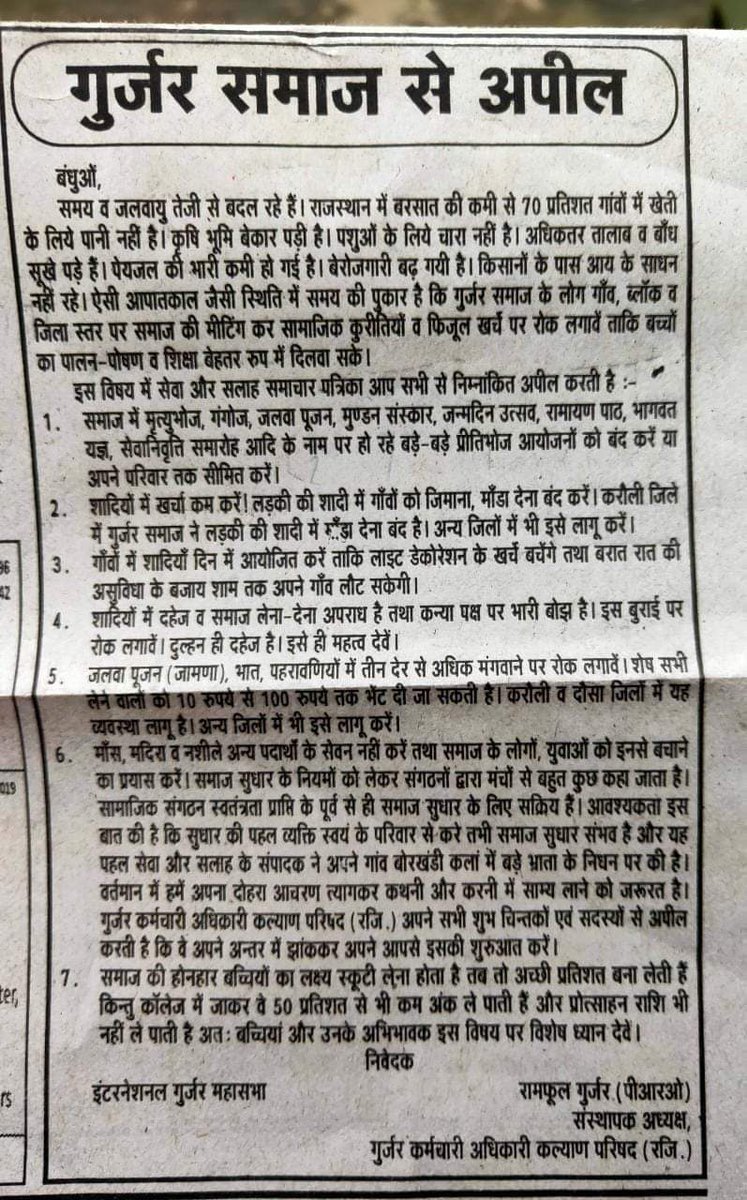 गुर्जर समाज से अपील
बंधुओं,
समय व जलवायु तेजी से बदल रहे हैं। राजस्थान में बरसात की कमी से 70 प्रतिशत गांवों में खेती
के लिये पानी नहीं है। कृषि भूमि बेकार पड़ी है। पशुओं के लिये चारा नहीं है। अधिकतर तालाब व बाँध
सूखे पड़े हैं। पेयजल की भारी कमी हो गई है। बेरोजगारी बढ़ गयी है। किसानों के पास आय के साधन
नहीं रहे। ऐसी आपातकाल जैसी स्थिति में समय की पुकार है कि गुर्जर समाज के लोग गाँव, ब्लॉक व
जिला स्तर पर समाज की मीटिंग कर सामाजिक कुरीतियों व फिजूल खर्चे पर रोक लगावें ताकि बच्चों
का पालन-पोषण व शिक्षा बेहतर रुप में दिलवा सके।
इस विषय में सेवा और सलाह समाचार पत्रिका आप सभी से निम्नांकित अपील करती है :-
1. समाज में मृत्युभोज, गंगोज, जलवा पूजन, मुण्डन संस्कार, जन्मदिन उत्सव, रामायण पाठ, भागवत
यज्ञ, सेवानिवृति समारोह आदि के नाम पर हो रहे बड़े-बड़े प्रीतिभोज आयोजनों को बंद करें या
अपने परिवार तक सीमित करें।
2. शादियों में खर्चा कम करें! लड़की की शादी में गाँवों को जिमाना, माँडा देना बंद करें। करौली जिले
में गुर्जर समाज ने लड़की की शादी में देना बंद है। अन्य जिलों में भी इसे लागू करें।
3. गाँवों में शादियाँ दिन में आयोजित करें ताकि लाइट डेकोरेशन के खर्चे बचेंगे तथा बरात रात की
असुविधा के बजाय शाम तक अपने गाँव लौट सकेगी।
4. शादियों में दहेज व समाज लेना-देना अपराध है तथा कन्या पक्ष पर भारी बोझ है। इस बुराई पर
रोक लगावें। दुल्हन ही दहेज है। इसे ही महत्व देवें।
5. जलवा पूजन (जामणा), भात, पहरावणियों में तीन देर से अधिक मंगवाने पर रोक लगावें। शेष सभी
लेने वालों को 10 रुपये से 100 रुपये तक भेंट दी जा सकती है। करौली व दौसा जिलों में यह
व्यवस्था लागू है। अन्य जिलों में भी इसे लागू करें।
6. माँस, मदिरा व नशीले अन्य पदार्थो के सेवन नहीं करें तथा समाज के लोगों, युवाओं को इनसे बचाने
का प्रयास करें। समाज सुधार के नियमों को लेकर संगठनों द्वारा मंचों से बहुत कुछ कहा जाता है।
सामाजिक संगठन स्वतंत्रता प्राप्ति के पूर्व से ही समाज सुधार के लिए सक्रिय हैं। आवश्यकता इस
बात की है कि सुधार की पहल व्यक्ति स्वयं के परिवार से करे तभी समाज सुधार संभव है और यह
पहल सेवा और सलाह के संपादक ने अपने गांव बोरखंडी कलां में बड़े भ्राता के निधन पर की है।
वर्तमान में हमें अपना दोहरा आचरण त्यागकर कथनी और करनी में साम्य लाने को जरूरत है।
गुर्जर कर्मचारी अधिकारी कल्याण परिषद (रजि.) अपने सभी शुभ चिन्तकों एवं सदस्यों से अपील
करती है कि वे अपने अन्तर में झांककर अपने आपसे इसकी शुरुआत करें।
7. समाज की होनहार बच्चियों का लक्ष्य स्कूटी लेना होता है तब तो अच्छी प्रतिशत बना लेती हैं
किन्तु कॉलेज में जाकर वे 50 प्रतिशत से भी कम अंक ले पाती हैं और प्रोत्साहन राशि भी
नहीं ले पाती है अतः बच्चियां और उनके अभिभावक इस विषय पर विशेष ध्यान देवें।
निवेदक
इंटरनेशनल गुर्जर महासभा रामफूल गुर्जर (पीआरओ)
संस्थापक अध्यक्ष,
गुर्जर कर्मचारी अधिकारी कल्याण परिषद (रजि.)